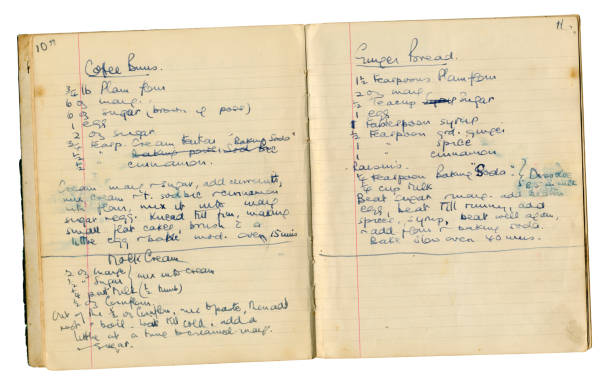 10
Coffee Buns.
3/4 lb Plain flour
6 oz marg.
6 oz sugar (brown if poss)
1 egg
2 oz sugar
Teasp. Cream Tartar "Baking Soda"
cinnamon.
Cream marg & sugar, add currants,
mix cream & t. sod bic & cinnamon
into flour, mix it into marg
sugar & egg. Knead till firm, making
small flat cakes, brush &
little egg & bake mod. oven 15 mins
Mock Cream
2 oz marg } mix into cream
1 " sugar
1/4 pint Milk
1/2 oz Cornflour.
Out of the cornflour, mix to paste, then add
& boil. till cold, add a
little at a time to creamed marg.
& sugar.
11.
Ginger Bread.
1 1/2 teaspoons Plain flour
2 oz marg
1/2 Teacup sugar
1 egg
1 tablespoon syrup
1/2 teaspoon grd. ginger
1 " spice
1 " cinnamon
Raisins.
1/4 teaspoon Baking Soda
1/4 cup milk
Beat sugar & marg. add
egg, beat till runny, add
spice, syrup, beat well again,
& add flour & baking soda.
Bake slow oven 40 mins.